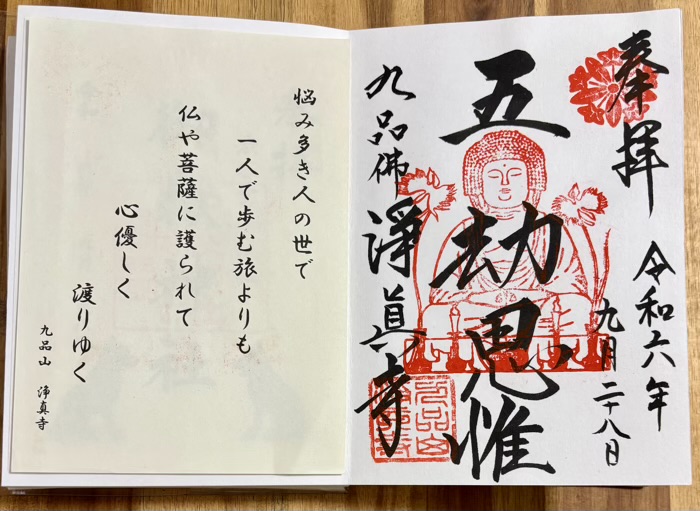 奉拝
令和六年
九月二十八日
五劫思惟
九品佛 淨眞寺
九品山
悩み多き人の世で
一人で歩む旅よりも
仏や菩薩に護られて
心優しく
渡りゆく
九品山 浄真寺